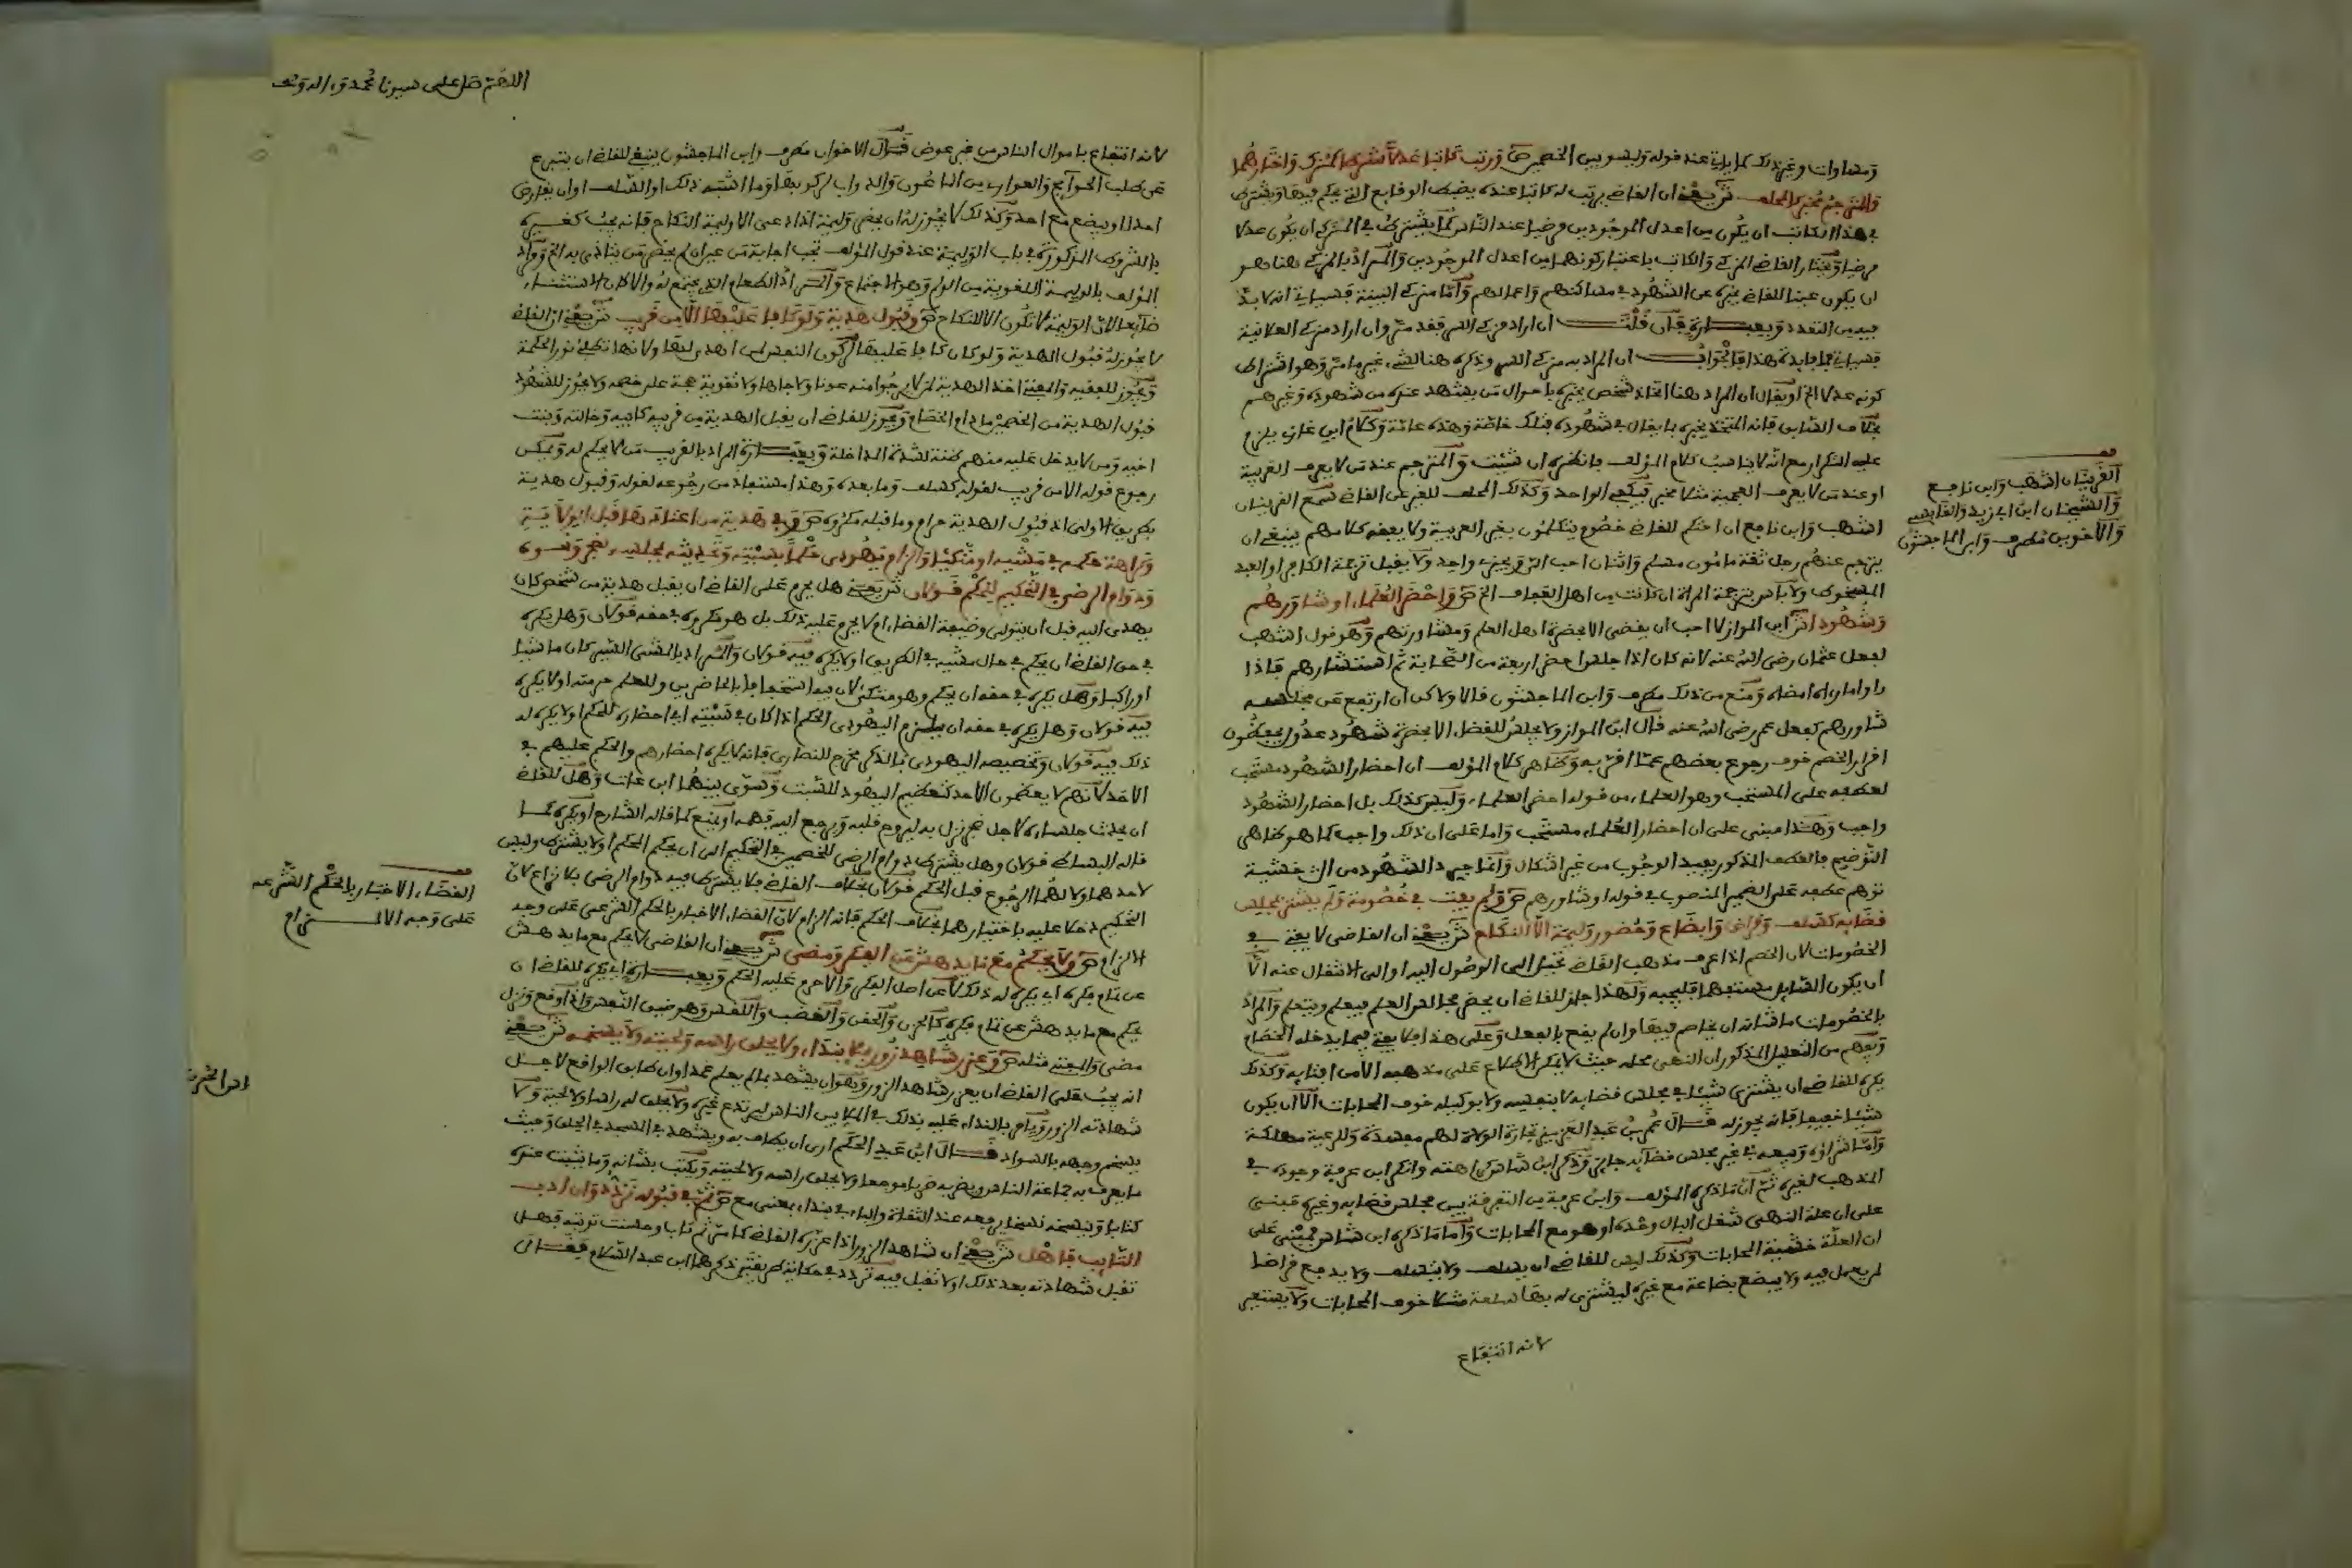 ومساوات وغير ذلك كما ياتي عند قوله وليسو بين الخصمين ص ورتب كاتبا عدلا شرطا كمزك واختارهما
والمترجم مخبر كالمحلف ش يعني ان القاضي يرتب له كاتبا عنده يضبط الوقايع التي يحكم فيها ويشترط
في هذا الكاتب ان يكون من اعدل الموجودين مرضيا عند الناس كما يشترط في المزكي ان يكون عدلا
مرضيا ويختار القاضي المزكي والكاتب باعتبار كونهما من اعدل الموجودين والمراد بالمزكي هنا هو
ان يكون عينا للقاضي يخبره عن الشهود في مساكنهم واعمالهم واما مزكي البينة فسياتي انه لا بد
فيه من التعدد وبعبارة فان قلت ان اراد مزكي السر فقد مر وان اراد مزكي العلانية
فسياتي فما فايدة هذا فالجواب ان المراد به مزكي السر وذكره هنا لشيء غير ما مر وهو اشتراط
كونه عدلا الخ او يقال ان المراد هنا اتخاذ شخص يخبره باحوال من يشهد عنده من شهوده وغيرهم
بخلاف السابق فانه المتخذ يخبره بما يقال في شهوده فتلك خاصة وهذه عامة وكلام ابن غازي يلزم
عليه التكرار مع انه لا يناسب كلام المؤلف فانظره ان شئت والمترجم عند من لا يعرف العربية
او عند من لا يعرف العجمية مثلا مخبر فيكفي الواحد وكذلك المحلف للغير عن القاضي سمع القرينان
اشهب وابن نافع ان احتكم للقاضي خصوم يتكلمون بغير العربية ولا يفقه كلامهم ينبغي ان
يترجم عنهم رجل ثقة مامون مسلم واثنان احب الي ويجزي واحد ولا يقبل ترجمة الكافر او العبد
المسخوط ولا باس بترجمة المراة ان كانت من اهل العفاف الخ ص واحضر العلماء او شاورهم
وشهودا ش ابن المواز لا احب ان يقضي الا بحضرة اهل العلم ومشاورتهم وهو قول اشهب
لفعل عثمان رضي الله عنه لانه كان اذا جلس احضر اربعة من الصحابة ثم استشارهم فاذا
راوا ما راه امضاه ومنع من ذلك مطرف وابن الماجشون قالا ولاكن ان ارتفع عن مجلسه
شاورهم كفعل عمر رضي الله عنه قال ابن المواز ولا يجلس للقضاء الا بحضرة شهود عدول يحفظون
اقرار الخصم خوف رجوع بعضهم عما اقر به وظاهر كلام المؤلف ان احضار الشهود مستحب
لعطفه على المستحب وهو العلماء من قوله احضر العلماء وليس كذلك بل احضار الشهود
واجب وهذا مبني على ان احضار العلماء مستحب واما على ان ذلك واجب كما هو ظاهر
التوضيح فالعطف المذكور يفيد الوجوب من غير اشكال وانما جرد الشهود من ال خشية
توهم عطفه على الضمير المنصوب في قوله او شاورهم ص ولم يفت في خصومة ولم يشتر بمجلس
قضايه كسلف وقراض وابضاع وحضور وليمة الا النكاح ش يعني ان القاضي لا يفتي في
الخصومات لان الخصم اذا عرف مذهب القاضي تحيل الى الوصول اليه او الى الانتقال عنه الا
ان يكون السايل مستفتيا فليجبه ولهذا جاز للقاضي ان يحضر مجالس العلم فيعلم ويتعلم والمراد
بالخصومات ما شانه ان يخاصم فيها وان لم يقع بالفعل وعلى هذا فلا يفتي فيما يدخله الخصام
ويفهم من التعليل المذكور ان النهي محله حيث لا يمكن الاطلاع على مذهبه الا من افتايه وكذلك
يكره للقاضي ان يشتري شيئا في مجلس قضايه لا بنفسه ولا بوكيله خوف المحابات الا ان يكون
شيئا خفيفا فانه يجوز له قال عمر بن عبد العزيز تجارة الولاة لهم مفسدة وللرعية مهلكة
واما شراؤه وبيعه في غير مجلس قضايه جايز وذكر ابن شاس كراهته وانكر ابن عرفة وجوده في
المذهب لغيره ثم ان ما ذكره المؤلف وابن عرفة من التفرقة بين مجلس قضايه وغيره فمبني
على ان علة النهي شغل البال وحده او هو مع المحابات واما ما ذكره ابن شاس فمبني على
ان العلة خشية المحابات وكذلك ليس للقاضي ان يسلف ولا يتسلف ولا يدفع قراضا
لمن يعمل فيه ولا يبضع بضاعة مع غيره ليشتري له بها سلعة مثلا خوف المحابات ولا يستعير
لانه انتفاع
القرينان اشهب وابن نافع
والشيخان ابن ابي زيد والقابسي
والاخوين مطرف وابن الماجشون
اللهم صل على سيدنا محمد وءاله وصحبه
لانه انتفاع باموال الناس من غير عوض قال الاخوان مطرف وابن الماجشون ينبغي للقاضي ان يتورع
عن طلب الحوايج والعواري من الماعون والدواب لركوبها وما اشبه ذلك او السلف او ان يقارض
احدا او يبضع مع احد وكذلك لا يجوز له ان يحضر وليمة اذا دعي الا وليمة النكاح فانه يجب كغيره
بالشروط المذكورة في باب الوليمة عند قول المؤلف تجب اجابة من عين ان لم يحضر من يتاذى به الخ ومراد
المؤلف بالوليمة اللغوية من الولم وهو الاجتماع والمراد الطعام الذي يجتمع له والا كان الاستثناء
ضايعا لان الوليمة لا تكون الا للنكاح ص وقبول هدية ولو كافا عليها الا من قريب ش يعني ان القاضي
لا يجوز له قبول الهدية ولو كان كافا عليها لركون النفس لمن اهدى لها ولانها تطفئ نور الحكمة
ويجوز للفقيه والمفتي اخذ الهدية ممن لا يرجوا منه عونا ولا جاها ولا تقوية حجة على خصمه ولا يجوز للشهود
قبول الهدية من الخصمين ما دام الخصام ويجوز للقاضي ان يقبل الهدية من قريبه كابيه وخالته وبنت
اخيه ومن لا يدخل عليه منهم ظنة لشدة المداخلة وبعبارة المراد بالقريب من لا يحكم له ويمكن
رجوع قوله الا من قريب لقوله كسلف وما بعده وهذا مستفاد من رجوعه لقوله وقبول هدية
بطريق الاولى اذ قبول الهدية حرام وما قبله مكروه ص وفي هدية من اعتادها قبل الولاية
وكراهة حكمه في مشيه او متكئا والزام يهودي حكما بسبته وتحديثه بمجلسه لضجر
ودوام الرضى في التحكيم للحكم قولان ش يعني هل يحرم على القاضي ان يقبل هدية من شخص كان
يهدي اليه قبل ان يتولى وظيفة القضاء ام لا يحرم عليه ذلك بل هو مكروه في حقه قولان وهل يكره
في حق القاضي ان يحكم في حال مشيه في الطريق او لا يكره فيه قولان والمراد بالمشي السير كان ماشيا
او راكبا وهل يكره في حقه ان يحكم وهو متكئ لان فيه استخفافا بالحاضرين وللعلم حرمته او لا يكره
فيه قولان وهل يكره في حقه ان يلزم اليهودي الحكم اذا كان في سبته اي احضاره للحكم او لا يكره له
ذلك فيه قولان وتخصيصه اليهودي بالذكر مخرج للنصارى فانه لا يكره احضارهم والحكم عليهم في
الاحد لانهم لا يعظمون الاحد كتعظيم اليهود للسبت وسوى بينهما ابن عات وهل للقاضي
ان يحدث جلساءه لاجل ضجر نزل به ليروح قلبه ويرجع اليه فهمه او يمنع كما قاله الشارح او يكره كما
قاله البساطي قولان وهل يشترط دوام الرضى للخصمين في التحكيم الى ان يحكم الحكم او لا يشترط وليس
لاحدهما ولا لهما الرجوع قبل الحكم قولان بخلاف القاضي فلا يشترط فيه دوام الرضى بلا نزاع لان
التحكيم دخلا عليه باختيارهما بخلاف الحكم فانه الزام لان القضاء الاخبار بالحكم الشرعي على وجه
الالزام ص ولا يحكم مع ما يدهش عن الفكر ومضى ش يعني ان القاضي لا يحكم مع ما يدهش
عن تمام فكره اي يكره له ذلك لا عن اصل الفكر والا حرم عليه الحكم وبعبارة اي يكره للقاضي ان
يحكم مع ما يدهش عن تمام فكره كالحزن والحقن والغضب واللقس وهو ضيق النفس واذا وقع ونزل
مضى والمفتي مثله ص وعزر شاهد زور بملا بنداء ولا يحلق راسه ولحيته ولا يسخمه ش يعني
انه يجب على القاضي ان يعزر شاهد الزور وهو ان يشهد بما لم يعلم عمدا وان طابق الواقع لاجل
شهادته الزور ويامر بالنداء عليه بذلك في الملا بين الناس ليرتدع غيره ولا يحلق له راسا ولا لحية ولا
يسخم وجهه بالسواد قال ابن عبد الحكم ارى ان يطاف به ويشهد في المسجد في الحلق وحيث
ما يعرف به جماعة الناس ويضربه ضربا موجعا ولا يحلق راسه ولا لحيته ويكتب بشانه وما ثبت عنده
كتابا وينسخه نسخا يرفعه عند الثقاة والباء في بنداء بمعنى مع ص ثم في قبوله تردد وان ادب
التايب فاهل ش يعني ان شاهد الزور اذا عزره القاضي كما مر ثم تاب وحسنت توبته فهل
تقبل شهادته بعد ذلك او لا تقبل فيه تردد في حكاية طريقتين ذكرهما ابن عبد السلام فقال
القضاء الاخبار بالحكم الشرعي
على وجه الالـزام